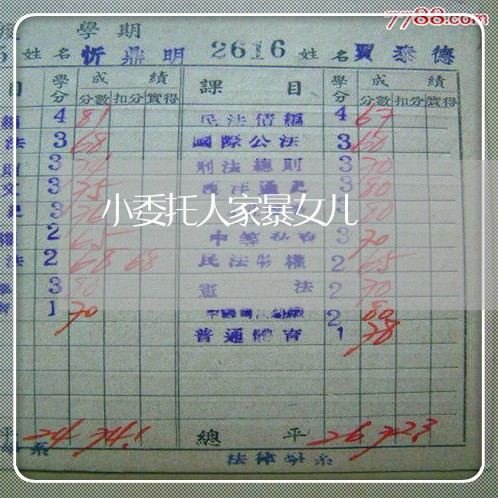 7788.com
學期
姓名 忻鼎明 2616 姓名 賈泰德
目 學分 成績 課目 學分 成績
分數 扣分 實得 分數 扣分 實得
4 81 民法債編 4 67
法 3 68 國際公法 3 60
3 刑法總則 3 70
3 75 3 80
3 3 80
小委托人家暴女儿
2 65 中等 3 70
法 2 68 68 民法物權 2 65
3 80 憲法 2 70
1 70 2 80
普通體育 1 78
平 24 74.1 總平 26 72.3
系 法律學系